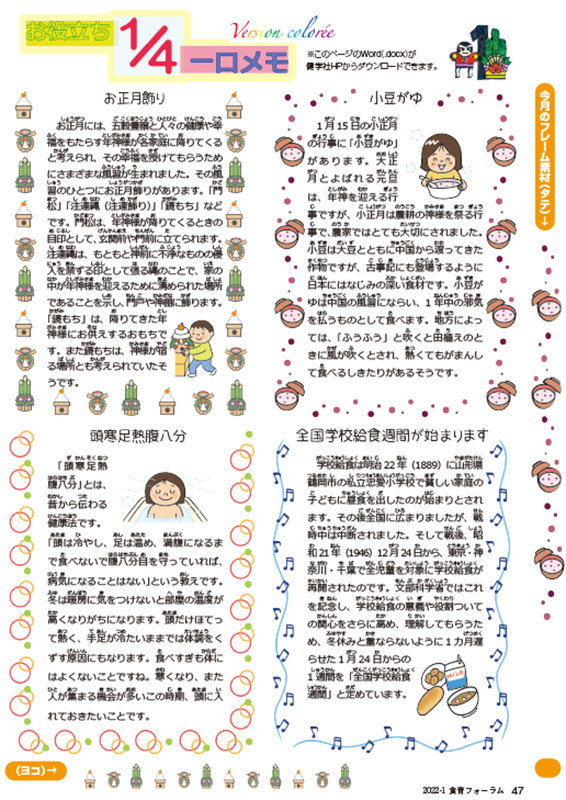 お役立ち
1/4
一口メモ
Version colorée
※このページのWord(.docx)が
健学社HPからダウンロードできます。
今月のフレーム素材(タテ)→
お正月飾り
お正月には、五穀豊穣と人々の健康や幸
福をもたらす年神様が各家庭に降りてくる
と考えられ、その幸福を授けてもらうため
にさまざまな風習が生まれました。その風
習のひとつにお正月飾りがあります。「門
松」「注連縄(注連飾り)」「鏡もち」など
です。門松は、年神様が降りてくるときの
目印として、玄関前や門前に立てられます。
注連縄は、もともと神前に不浄なものの侵
入を禁ずる印として張る縄のことで、家の
中が年神様を迎えるために清められた場所
であることを示し、門戸や神器に飾ります。
「鏡もち」は、降りてきた年
神様にお供えするおもちで
す。また鏡もちは、神様が宿
る場所とも考えられていたそ
うです。
小豆がゆ
1月15日の小正月
の行事に「小豆がゆ」
があります。大正
月とよばれる元日
は、年神を迎える行
事ですが、小正月は農耕の神様を祭る行
事で、農家ではとても大切にされました。
小豆は大豆とともに中国から渡ってきた
作物ですが、古事記にも登場するように
日本にはなじみの深い食材です。小豆が
ゆは中国の風習にならい、1年中の邪気
を払うものとして食べます。地方によっ
ては、「ふうふう」と吹くと田植えのと
きに風が吹くとされ、熱くてもがまんし
て食べるしきたりがあるそうです。
頭寒足熱腹八分
「頭寒足熱
腹八分」とは、
昔から伝わる
健康法です。
「頭は冷やし、足は温め、満腹になるま
で食べないで腹八分目を守っていれば、
病気になることはない」という教えです。
冬は暖房に気をつけないと部屋の温度が
高くなりがちになります。頭だけほてっ
て熱く、手足が冷たいままでは体調をく
ずす原因にもなります。食べすぎも体に
はよくないことですね。寒くなり、また
人が集まる機会が多いこの時期、頭に入
れておきたいことです。
全国学校給食週間が始まります
学校給食は明治22年(1889)に山形県
鶴岡市の私立忠愛小学校で貧しい家庭の
子どもに昼食を出したのが始まりとされ
ます。その後全国に広まりましたが、戦
時中は中断されました。そして戦後、昭
和21年(1946)12月24日から、東京・神
奈川・千葉で全児童を対象に学校給食が
再開されたのです。文部科学省ではこれ
を記念し、学校給食の意義や役割ついて
の関心をさらに高め、理解してもらうた
め、冬休みと重ならないように1カ月遅
らせた1月24日からの
1週間を「全国学校給食
週間」と定めています。
MILK
(ヨコ)→
2022-1 食育フォーラム 47